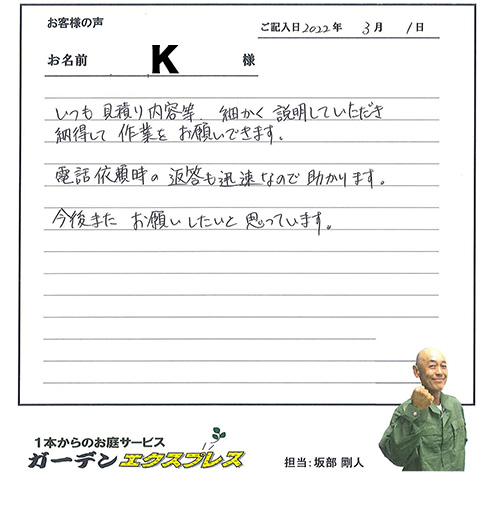 お客様の声
ご記入日2022年 3月 1日
お名前 K 様
いつも 見積り内容等、細かく 説明していただき
納得して 作業を お願いできます。
電話依頼時の 返答も迅速なので 助かります。
今後また お願いしたいと 思っています。
1本からのお庭サービス
ガーデンエクスプレス
担当:坂部 剛人